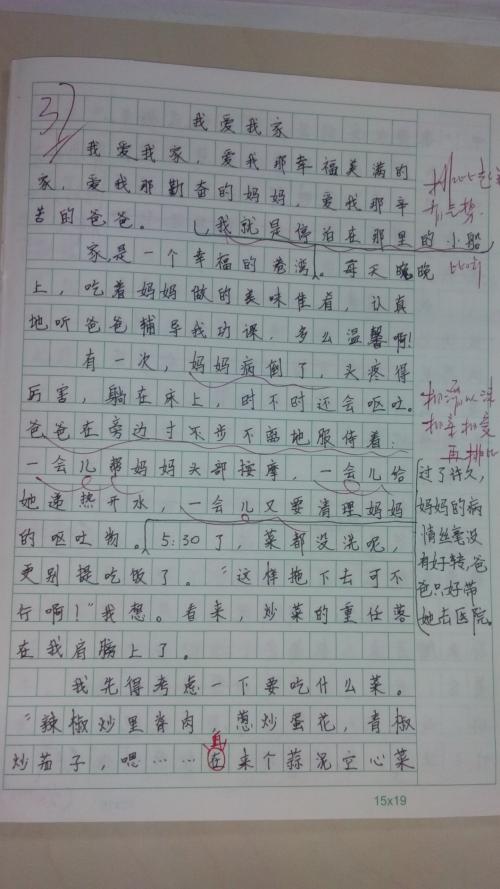 37
我爱我家
我爱我家，爱我那幸福美满的
家，爱我那勤奋的妈妈，爱我那辛
苦的爸爸。
我就是停泊在那里的小船
家，是一个幸福的港湾。每天晚晚
比喻
上，吃着妈妈做的美味佳肴，认真
地听爸爸辅导我功课，多么温馨啊！
有一次，妈妈病倒了，头疼得
厉害，躺在床上，时不时还会呕吐。
爸爸在旁边寸不步不离地服侍着：
一会儿帮妈妈头部按摩，一会儿给
她递热开水，一会儿又要清理妈妈
的呕吐物。5:30了，菜都没洗呢，
更别提吃饭了。“这样拖下去可不
行啊！”我想。看来，炒菜的重任落
在我肩膀上了。
过了许久，
妈妈的病
情丝毫没
有好转，爸
爸只好带
她去医院。
我先得考虑一下要吃什么菜。
“辣椒炒里脊肉，葱炒蛋花，青椒
再
炒茄子，嗯……在来个蒜泥空心菜
15x19